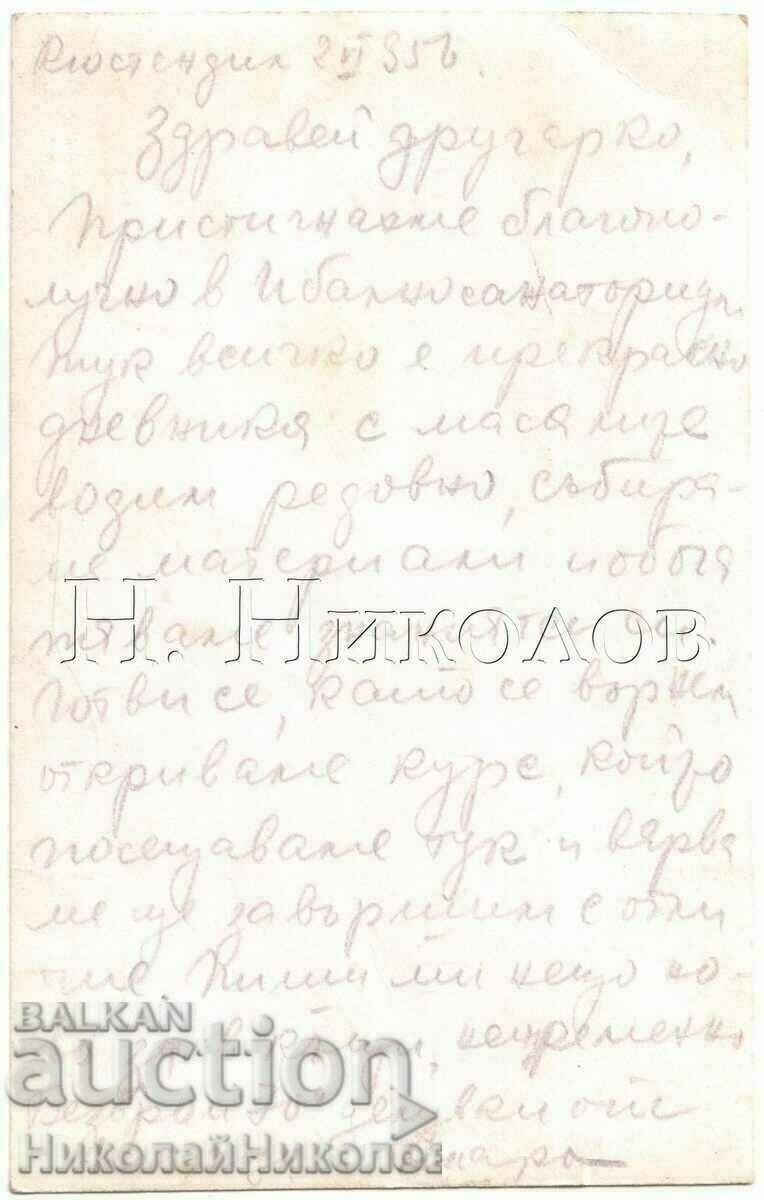 Кюстендил 2 VI 956.
Здравей другарко,
Пристигнахме благопо-
лучно в Ибалносанаториум.
Тук всичко е прекрасно
дневника с масажите
водим редовно, събира-
ме материали и обога
тяваме
Н. Николов
Готви се, като се върнем
откриваме курс, който
посещаваме тук и вярва
ме ще завършим с отли
чие. Пиши ми нещо но-
непременно
BALKAN
auction
от
НиколайНиколов